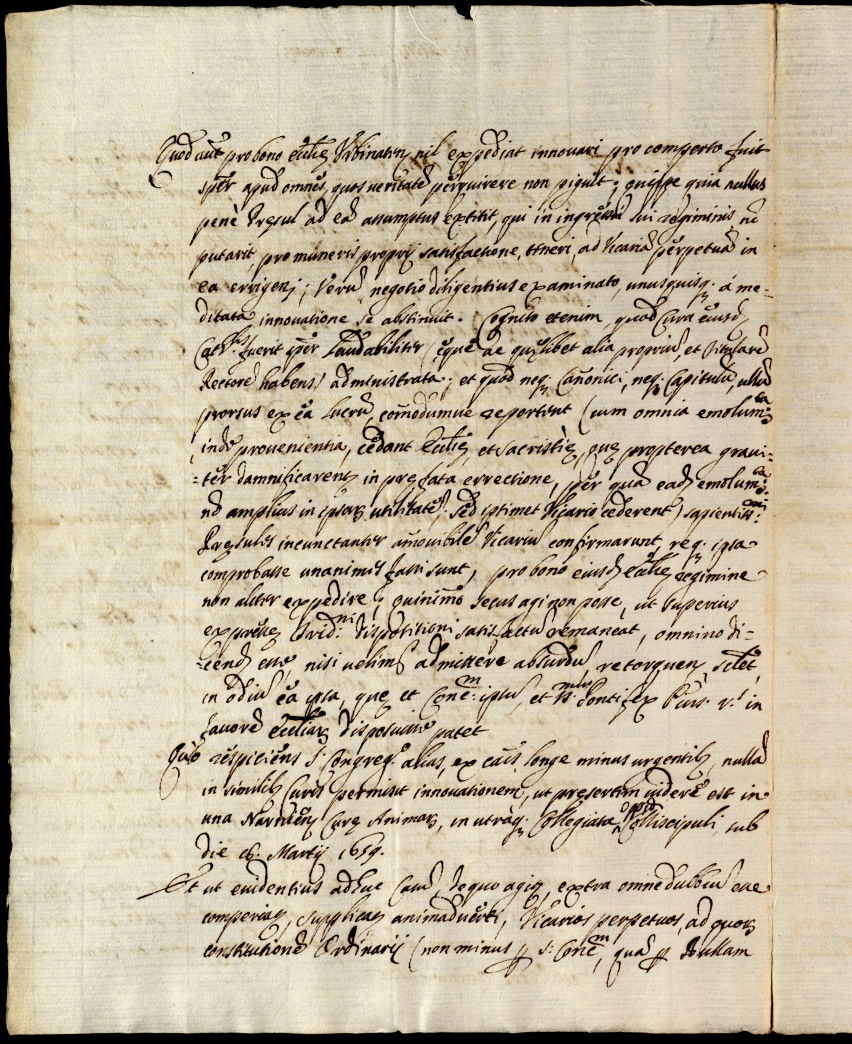 Quod autē pro bono ecclię Vrbinateñ nil expediat innovari pro comperto fuit
sp̄er apud omnes, quos veritatē perquirere non piguit; quippe quia nullus
penè Pręsul ad eā assumptus extitit, qui in ingressu sui regiminis nō
putarit, pro muneris proprij satisfactione, teneri, ad Vicariā perpetuā in
ea errigenꝫ; Verū negotio diligentius examinato, unusquisqꝫ á me-
ditata innovatione se abstinuit. Cognito etenim, quod Cura eiusdꝫ
Cath.lis fuerit sp̄er laudabiliter (ęque ac quęlibet alia proprium, et titularē
Rectorē habens) administrata; et quod neqꝫ Canonici, neqꝫ Capitulū, ullū
prorsus ex eā lucrū, com̄odumue reportent (cum omnia emolum.ta
inde provenientia, cedant Ecclię, et Sacristię, quę propterea graui-
ter damnificarentꝫ in pręfata errectione, per quā eadꝫ emolum.ta
nō amplius in ipsarꝫ utilitatē, sed iptimet Vicario cederent) sapientiss.mi
Pręsules incunctanter amouibilē Vicariū confirmarunt, reqꝫ ipsa
comprobasse unanimes fassi sunt, pro bono eiusdꝫ ecclię regimine
non aliter expedire; quinimo secus agi non posse, ut superius
expressę Trid.ni dispositioni satisfactū remaneat, omnino di-
cendꝫ esse, nisi uelimꝫ admittere absurdū, retorquenꝫ scilet,
in odiū eā ipsa, quę et Conc.m ipsū, et
fauorē eccliarꝫ disposuisse patet
Quo respiciens S. Congreg.o alias, ex causis longe minus urgentibꝫ, nullā
in similibꝫ Curis permisit innovationem, ut pręsertim uiderē est in
una Narnieñ Curę Animarꝫ, in utraqꝫ Collegiata Collisscipuli sub
die 16. Martij 1659.
Et ut euidentius adhuc Causā, de quo agitꝫ, extra omnē dubbiū esse
comperiatꝫ, supplicatꝫ animaduerti, Vicarios perpetuos, ad quorꝫ
constitutionē Ordinarij (non minus ꝑ S. Conc.m, quā ꝑ Bullam